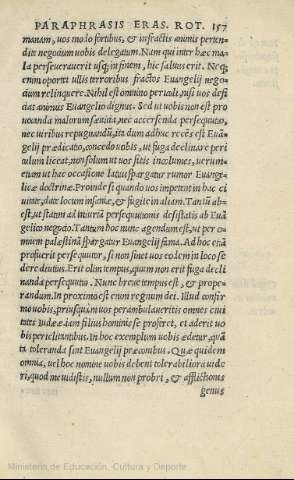 PARAPHRASIS ERAS. ROT. 157
manam, uos modo fortibus, & infractis animis peren-
dite negocium uobis delegatum. Nam qui inter hæc ma-
la perseuerauerit usq; in finem, hic saluus erit. Neq;
enim oportet ullis terroribus fractos Euangelij nego-
cium relinquere. Nihil est omnino periculi, nisi uos desi-
ciat animus Euangelio dignus. Sed ut uobis non est pro
uocanda malorum sæuitia, nec accersenda persequutio,
nec uiribus repugnandũ, ita dum adhuc recẽs est Euã-
gelij prædicatio, concedo uobis, ut fuga declinare peri-
culum liceat, non solum ut uos sitis incolumes, uerum-
etiam ut hac occasione latius spargatur rumor Euangel-
licæ doctrinæ. Proinde si quando uos impetent in hac ci
uitate, date locum insaniæ, & fugite in aliam. Tantũ ab-
est, ut statim ad iniuriã persequutionis desistatis ab Euã
gelico negocio. Tantum hoc nunc agendum est, ut per o-
mnium palæstinã spargatur Euangelij fama. Ad hoc etiã
profuerit persequutor, si non sinet uos eodem in loco se
dere ociusius. Erit olim tempus, quum non erit fuga decli
nanda persequutio. Nunc breue tempus est, & prope-
randum. In proximo est enim regnum dei. Illud confir
mo uobis, priusquàm uos perambulaueritis omnes ciui
tates Iudææ, iam filius hominis se proferet, et aderit uo
bis periclitantibus. In hoc exemplum uobis ædetur, quã
ta toleranda sint Euangelij præconibus. Quæ quidem
omnia, uel hoc nomine uobis debent tolerabiliora uide
ri, quod me uidistis, nullum non probri, & afflictionis
genus
Ministerio de Educación, Cultura y Deporte